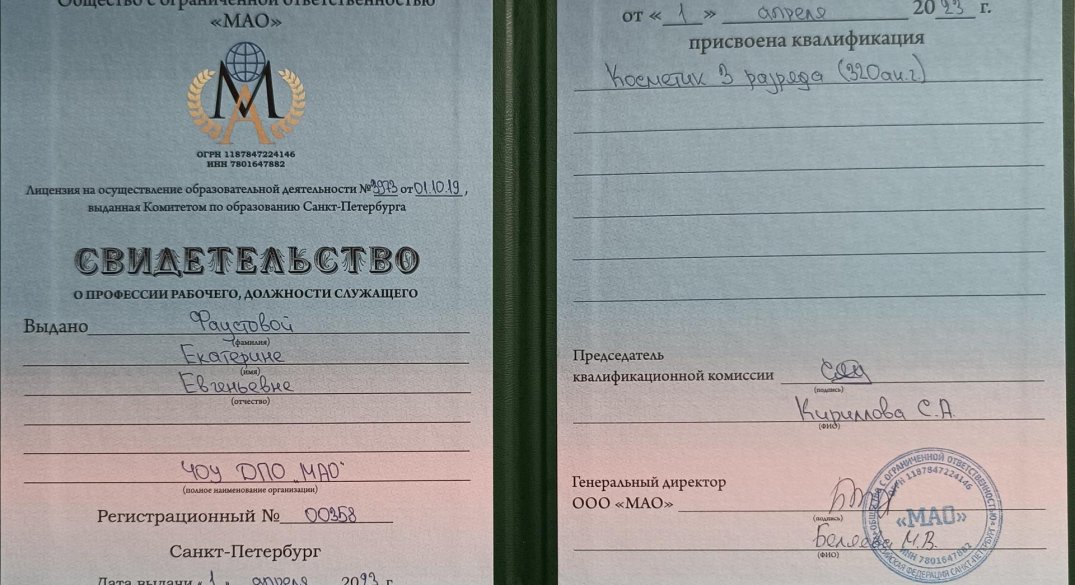 Общество с ограниченной ответственностью
«МАО»
МА
ОГРН 1187847224146
ИНН 7801647882
Лицензия на осуществление образовательной деятельности №3973 от 01.10.19,
выданная Комитетом по образованию Санкт-Петербурга
СВИДЕТЕЛЬСТВО
О ПРОФЕССИИ РАБОЧЕГО, ДОЛЖНОСТИ СЛУЖАЩЕГО
Выдано Фаустовой
(фамилия)
Екатерине
(имя)
Евгеньевне
(отчество)
ЧОУ ДПО "МАО"
(полное наименование организации)
Регистрационный № 00358
Санкт-Петербург
Дата выдачи «1» апреля 2023 г.
от «1» апреля 2023 г.
присвоена квалификация
Косметик 3 разряда (320 ак.ч)
Председатель
квалификационной комиссии
(подпись)
Кириллова С.А.
(ФИО)
Генеральный директор
ООО «МАО»
(подпись)
Беляева М.В.
(ФИО)
ОБЩЕСТВО С ОГРАНИЧЕННОЙ ОТВЕТСТВЕННОСТЬЮ
ОГРН 1187847224146
«МАО»
ИНН 7801647882
РОССИЙСКАЯ ФЕДЕРАЦИЯ САНКТ-ПЕТЕРБУРГ